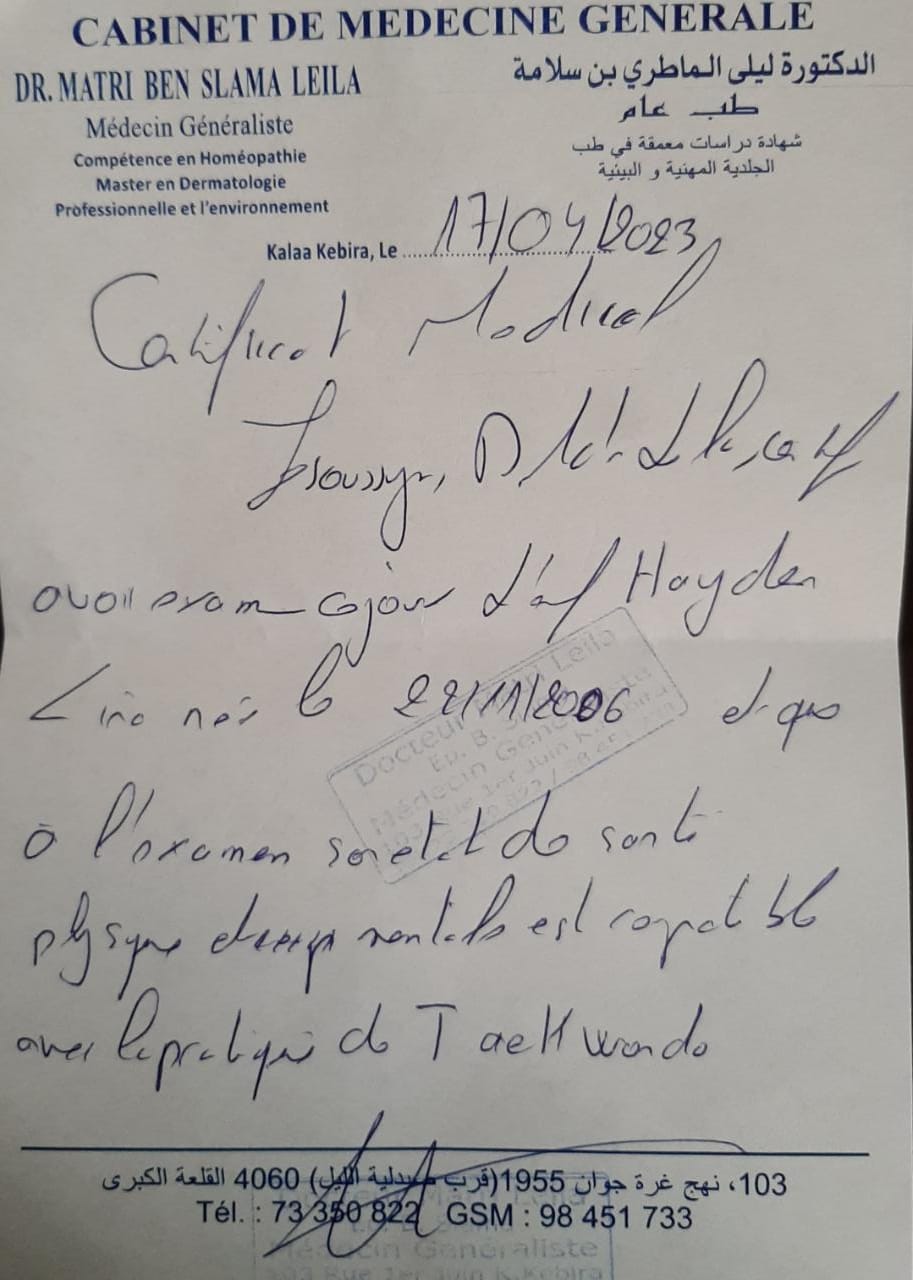 CABINET DE MEDECINE GENERALE
DR. MATRI BEN SLAMA LEILA
Médecin Généraliste
Compétence en Homéopathie
Master en Dermatologie
Professionnelle et l'environnement
الدكتورة ليلى الماطري بن سلامة
طب عام
شهادة دراسات معمقة في طب
الجلدية المهنية و البيئية
Kalaa Kebira, Le 17/04/2023
Certificat Medical
Je soussigné,
avoir exam ce jour Hayden
né le 22/11/2006 et que
à l'examen son etat de santé
physique et mentale est compatible
avec la pratique de Taekwondo
Docteur Leila
Médecin Généraliste
103, نهج غرة جوان 1955 (قرب صيدلية الليل) 4060 القلعة الكبرى
Tél. : 73 350 822 GSM : 98 451 733
Médecin Généraliste
103 Rue 1er Juin K.Kebira